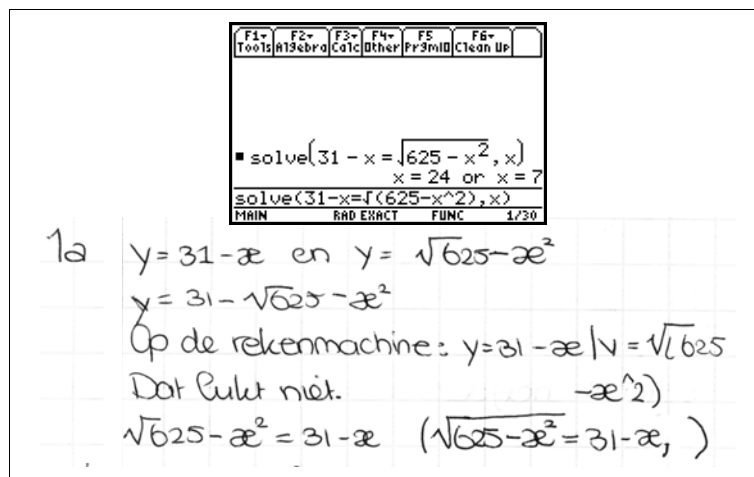 F1▾ F2▾ F3▾ F4▾ F5 F6▾
Tools Algebra Calc Other PrgmIO Clean Up
■ solve(31 - x = √(625 - x²), x)
x = 24 or x = 7
solve(31-x=√(625-x^2),x)
MAIN RAD EXACT FUNC 1/30
1a y = 31 - x en y = √625 - x²
y = 31 - √625 - x²
Op de rekenmachine: y=31 - x | y = √(625
Dat lukt niet. -x^2)
√625 - x² = 31 - x (√625-x² = 31-x, )